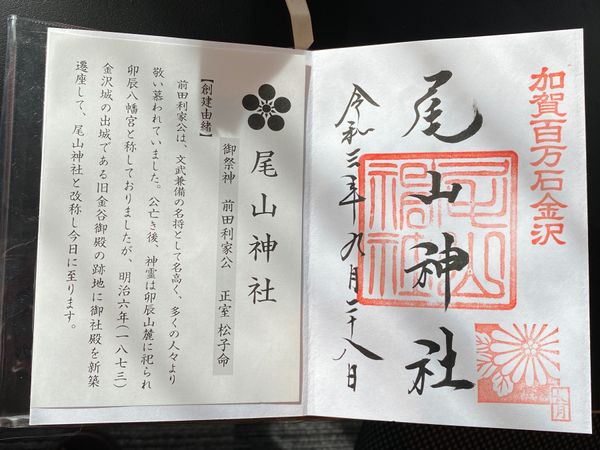 加賀百万石金沢
尾山神社
令和三年九月二十八日
尾山神社
尾山神社
御祭神 前田利家公 正室 松子命
【創建由緒】
前田利家公は、文武兼備の名将として名高く、多くの人々より
敬い慕われていました。公亡き後、神霊は卯辰山麓に祀られ
卯辰八幡宮と称しておりましたが、明治六年(一八七三)
金沢城の出城である旧金谷御殿の跡地に御社殿を新築
遷座して、尾山神社と改称し今日に至ります。